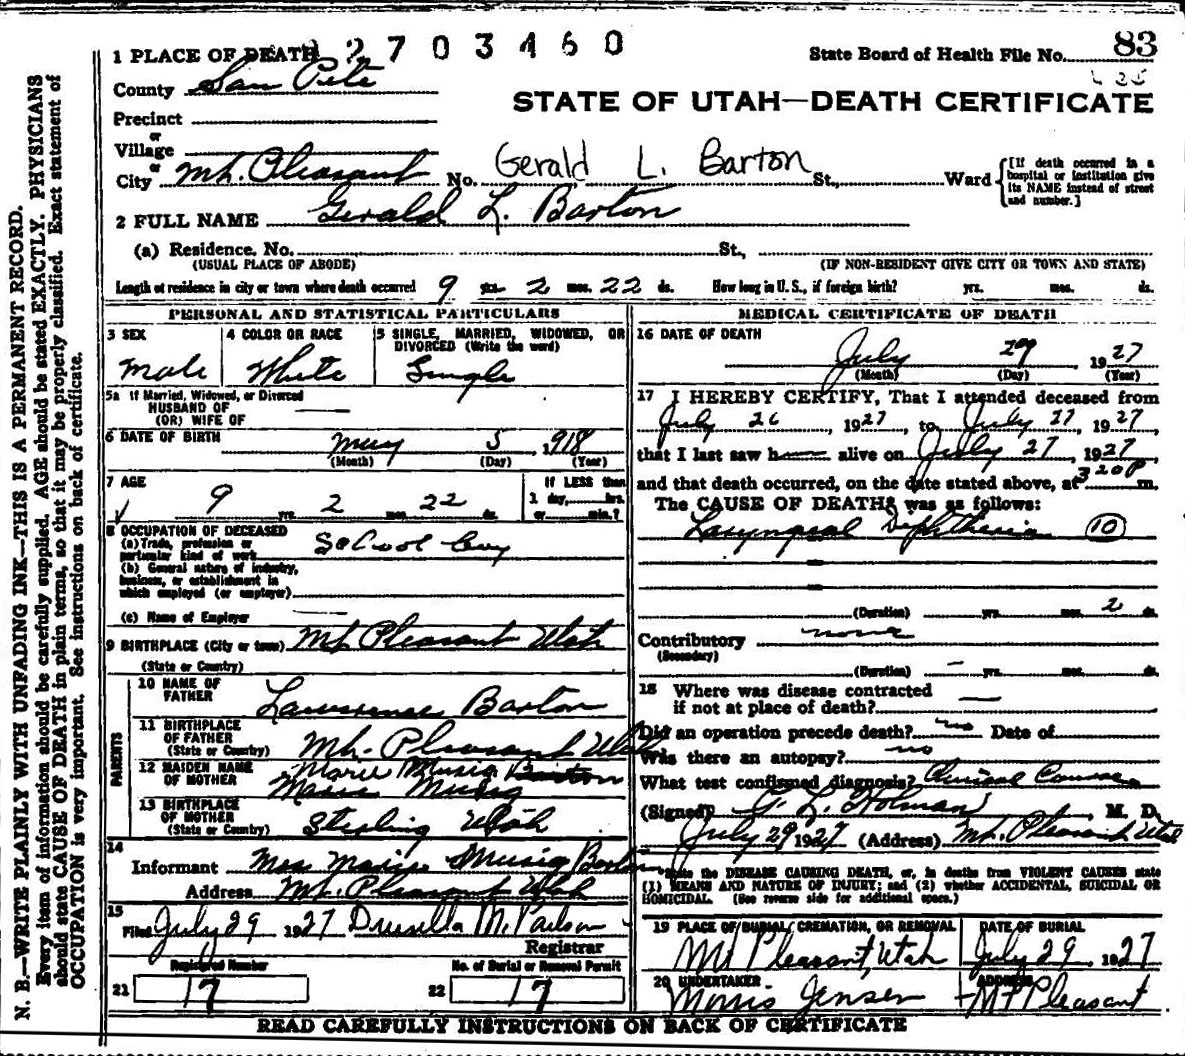 1 PLACE OF DEATH 2703460 State Board of Health File No. 83
County San Pete
STATE OF UTAH—DEATH CERTIFICATE
Precinct
or
Village
or
City Mt. Pleasant No. Gerald L. Barton St., Ward {[If death occurred in a hospital or institution give its NAME instead of street and number.]
2 FULL NAME Gerald L. Barton
(a) Residence, No. St.,
(USUAL PLACE OF ABODE) (IF NON-RESIDENT GIVE CITY OR TOWN AND STATE)
Length of residence in city or town where death occurred 9 yrs. 2 mos. 22 ds. How long in U. S., if foreign birth? yrs. mos. ds.
PERSONAL AND STATISTICAL PARTICULARS
3 SEX
Male
4 COLOR OR RACE
White
5 SINGLE, MARRIED, WIDOWED, OR
DIVORCED (Write the word)
Single
5a If Married, Widowed, or Divorced
HUSBAND OF
(OR) WIFE OF
6 DATE OF BIRTH
May 5 1918
(Month) (Day) (Year)
7 AGE
9 yrs. 2 mos. 22 ds.
If LESS than
1 day, hrs.
or min.?
8 OCCUPATION OF DECEASED
(a) Trade, profession or
particular kind of work School boy
(b) General nature of industry,
business, or establishment in
which employed (or employer)
(c) Name of Employer
9 BIRTHPLACE (City or town) Mt Pleasant Utah
(State or Country)
PARENTS
10 NAME OF
FATHER Lawrence Barton
11 BIRTHPLACE
OF FATHER
(State or Country) Mt. Pleasant Utah
12 MAIDEN NAME
OF MOTHER
Marie Musig Barton
Marie Musig
13 BIRTHPLACE
OF MOTHER
(State or Country) Sterling Utah
14
Informant Mrs Marie Musig Barton
Address Mt. Pleasant Utah
15
Filed July 29 1927 Druella M. Paulson
Registrar
Registered Number
21 17
No. of Burial or Removal Permit
22 17
MEDICAL CERTIFICATE OF DEATH
16 DATE OF DEATH
July 29 1927
(Month) (Day) (Year)
17 I HEREBY CERTIFY, That I attended deceased from
July 26, 1927, to July 27, 1927,
that I last saw h alive on July 27, 1927,
and that death occurred, on the date stated above, at 320P m.
The CAUSE OF DEATH was as follows:
Laryngeal Diphtheria (10)
(Duration) yrs. mos. 2 ds.
Contributory none
(Secondary)
(Duration) yrs. mos. ds.
18 Where was disease contracted
if not at place of death?
Did an operation precede death? no Date of
Was there an autopsy? no
What test confirmed diagnosis? Clinical Course
(Signed) Holman, M. D.
July 29 1927 (Address) Mt. Pleasant Utah
State the DISEASE CAUSING DEATH, or, in deaths from VIOLENT CAUSES state
(1) MEANS AND NATURE OF INJURY; and (2) whether ACCIDENTAL, SUICIDAL OR
HOMICIDAL. (See reverse side for additional space.)
19 PLACE OF BURIAL, CREMATION, OR REMOVAL
Mt Pleasant, Utah
DATE OF BURIAL
July 29, 1927
20 UNDERTAKER
Morris Jensen
ADDRESS
Mt Pleasant
READ CAREFULLY INSTRUCTIONS ON BACK OF CERTIFICATE
N. B.—WRITE PLAINLY WITH UNFADING INK—THIS IS A PERMANENT RECORD.
Every item of information should be carefully supplied. AGE should be stated EXACTLY. PHYSICIANS
should state CAUSE OF DEATH in plain terms, so that it may be properly classified. Exact statement of
OCCUPATION is very important. See instructions on back of certificate.